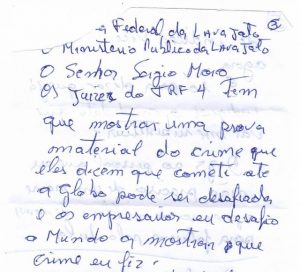 a Federal da Lava Jato
o Ministerio Publico da Lava Jato
O Senhor Sergio Moro
Os Juizes do TRF 4 tem
que mostrar uma prova
material do crime que
eles dicem que cometi até
a Globo pode ser desafiada
e os empresarios eu desafio
o Mundo a mostrar que
crime eu fiz.